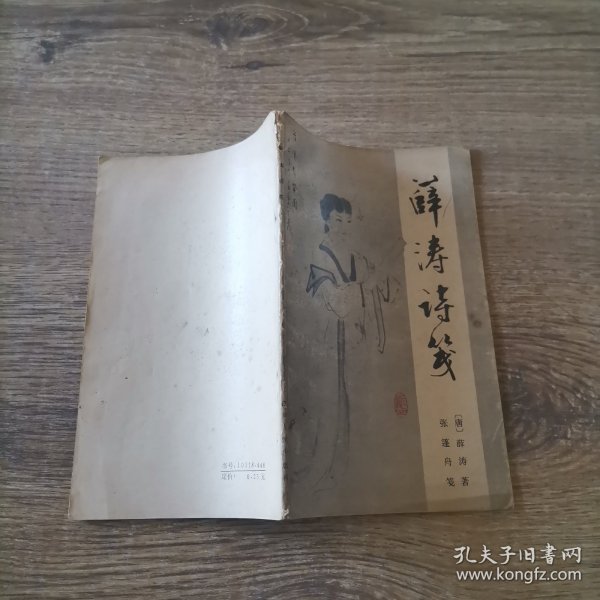 薛涛诗笺
〔唐〕薛涛著
张篷舟笺
书号:10118·448
定价: 0.53元
孔夫子旧书网
www.kongfz.com